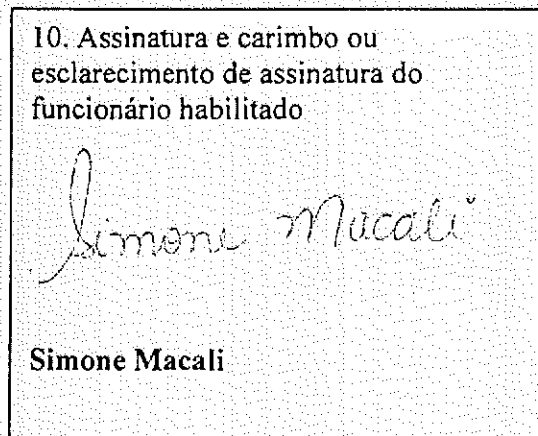 10. Assinatura e carimbo ou
esclarecimento de assinatura do
funcionário habilitado
Simone Macali
Simone Macali